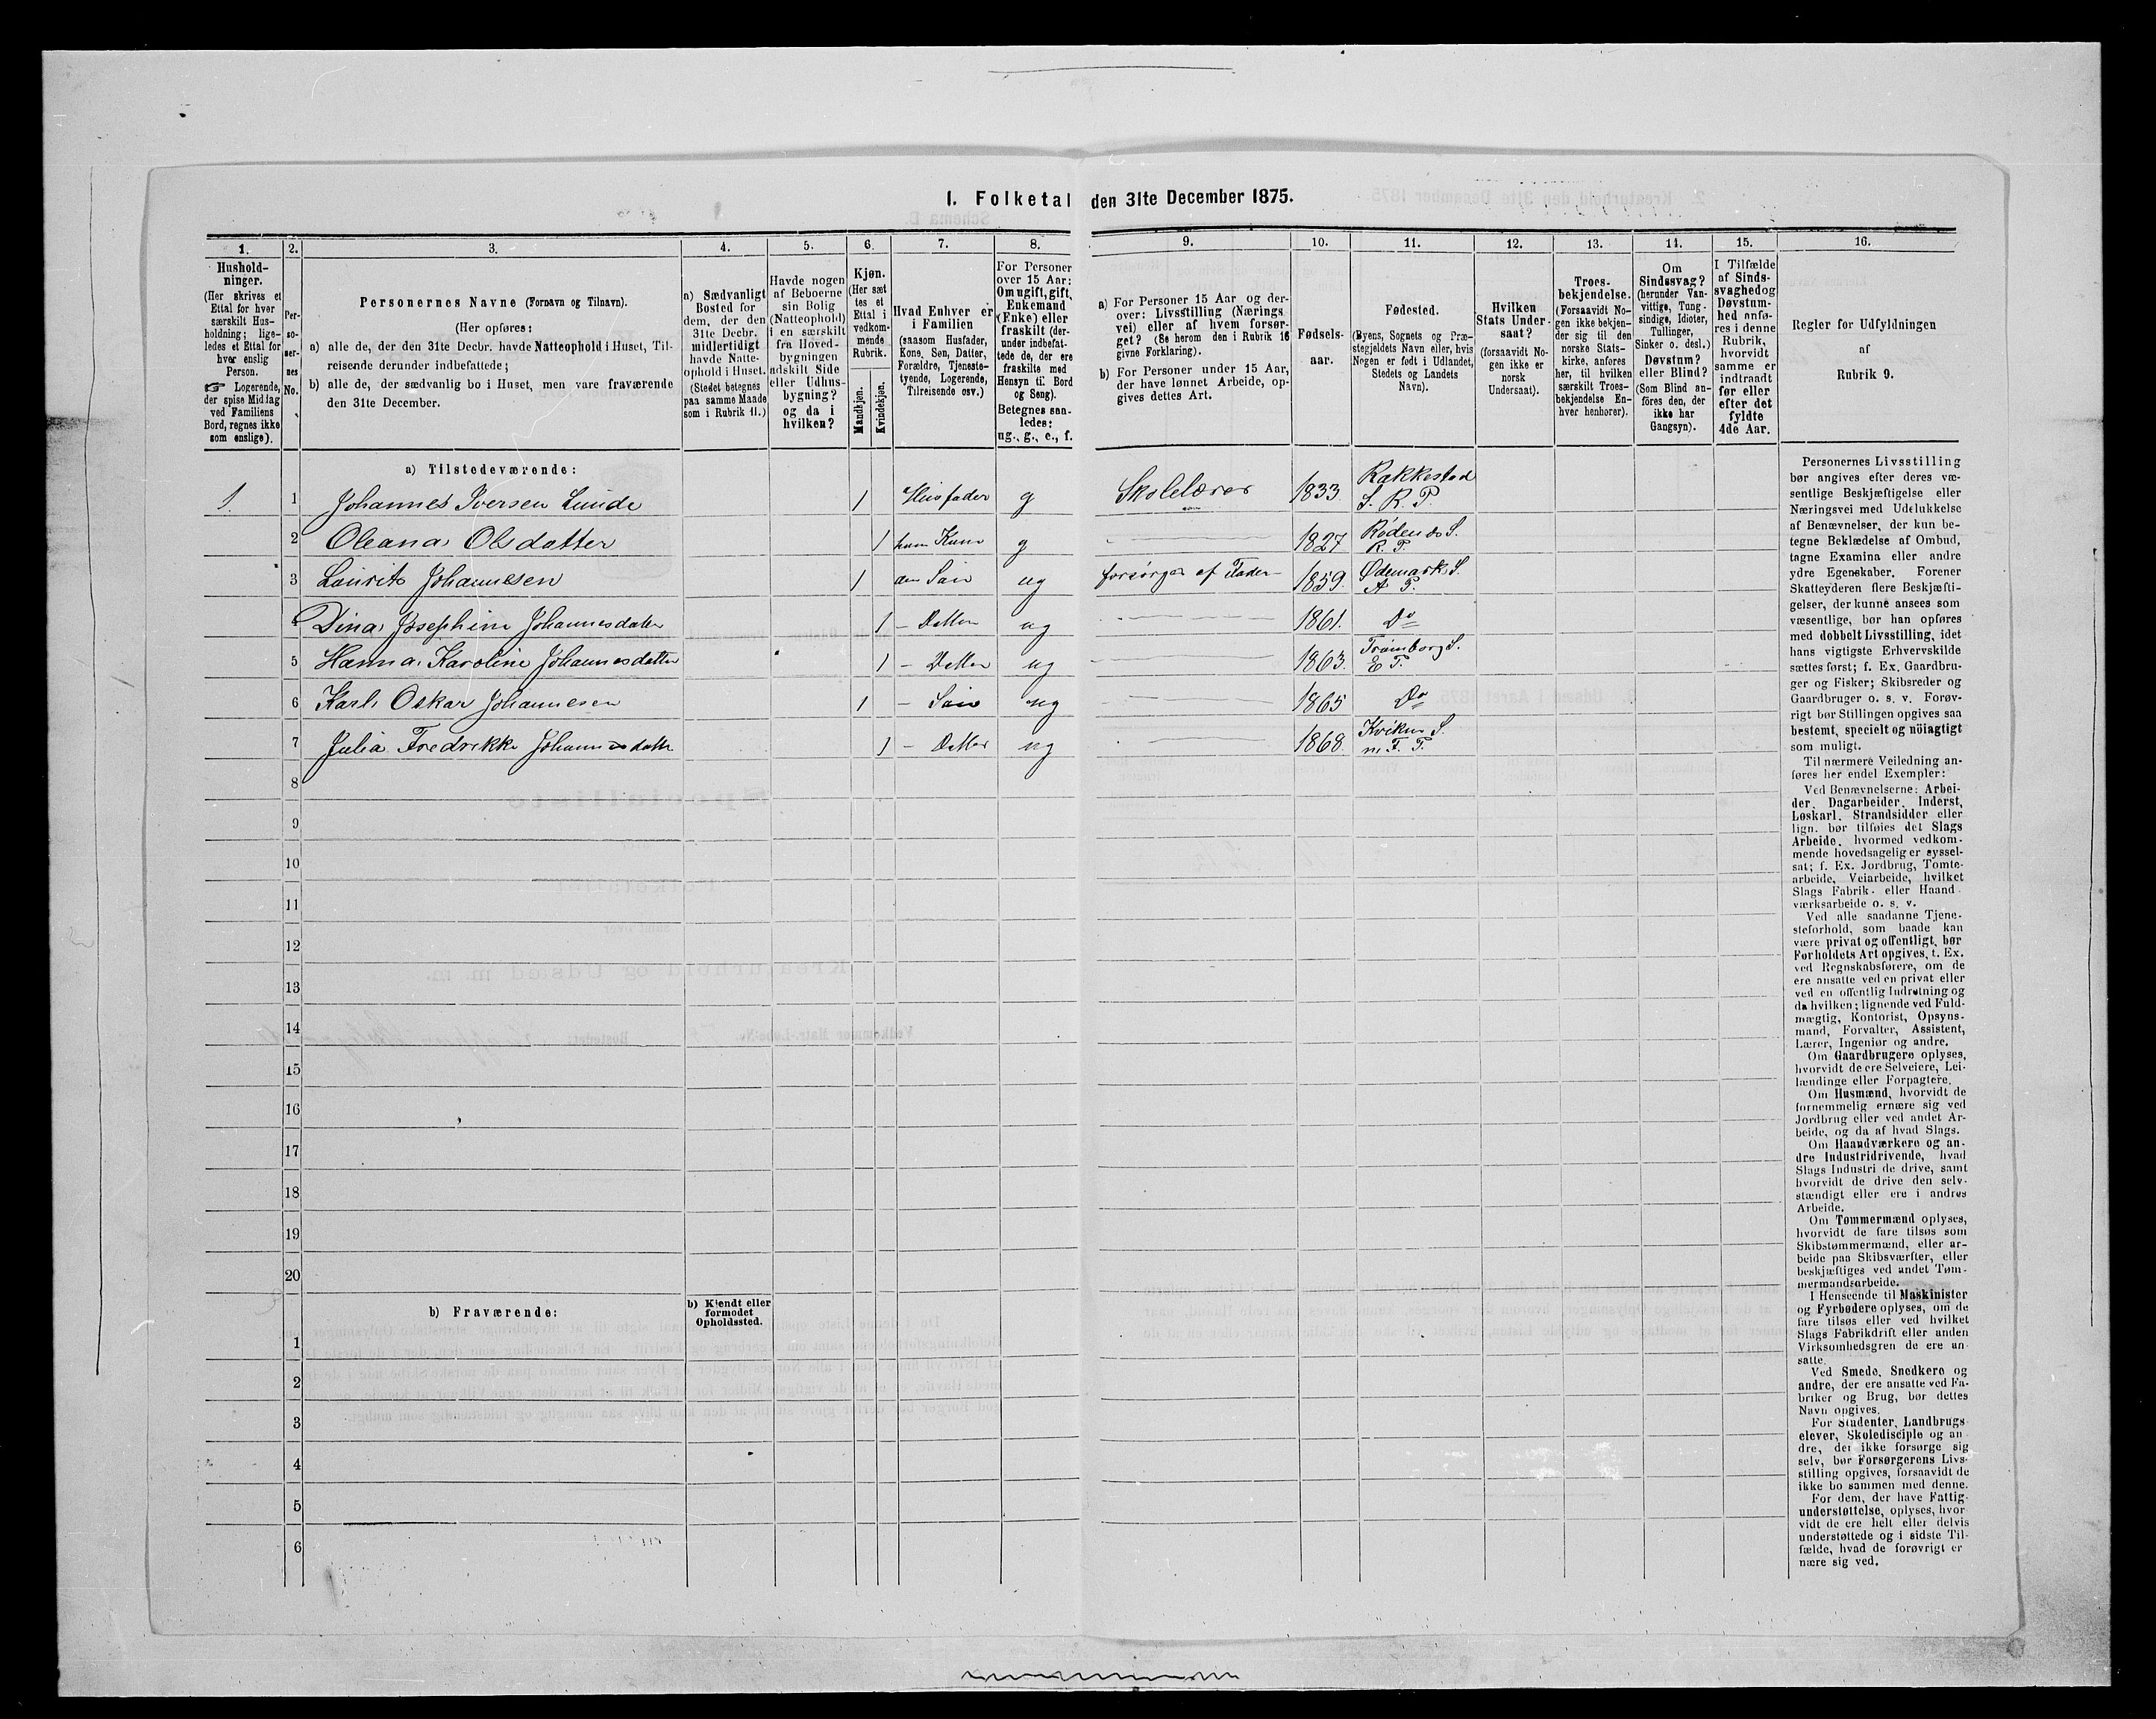 1. Folketal den 31te December 1875.
1. 2. 3. 4. 5. 6. 7. 8. 9. 10. 11. 12. 13. 14. 15. 16.
Hushold-
ninger.
(Her skrives et
Ettal for hver
særskilt Hus-
holdning; lige-
ledes et Ettal for
hver enslig
Person.
☞ Logerende,
der spise Middag
ved Familiens
Bord, regnes ikke
som enslige).
Per-
so-
ner-
nes
No.
Personernes Navne (Fornavn og Tilnavn).
(Her opføres:
a) alle de, der den 31te Decbr. havde Natteophold i Huset, Til-
reisende derunder indbefattede;
b) alle de, der sædvanlig bo i Huset, men vare fraværende
den 31te December.
a) Sædvanligt
Bosted for
dem, der den
31te Decbr.
midlertidigt
havde Natte-
ophold i Huset.
(Stedet betegnes
paa samme Maade
som i Rubrik 11.)
Havde nogen
af Beboerne
sin Bolig
(Natteophold)
i en særskilt
fra Hoved-
bygningen
adskilt Side
eller Udhus-
bygning?
og da i
hvilken?
Kjøn.
(Her sæt
tes et
Ettal i
vedkom-
mende
Rubrik.
Mandkjøn.
Kvindekjøn.
Hvad Enhver er
i Familien
(saasom Husfader,
Kone, Søn, Datter,
Forældre, Tjeneste-
tyende, Logerende,
Tilreisende osv.)
For Personer
over 15 Aar:
Om ugift, gift,
Enkemand
(Enke) eller
fraskilt (der-
under indbefat-
tede de, der ere
fraskilte med
Hensyn til Bord
og Seng).
Betegnes saa-
ledes:
ug., g., e., f.
a) For Personer 15 Aar og der-
over: Livsstilling (Nærings
vei) eller af hvem forsør-
get? (Se herom den i Rubrik 16
givne Forklaring).
b) For Personer under 15 Aar,
der have lønnet Arbeide, op-
gives dettes Art.
Fødsels-
aar.
Fødested.
(Byens, Sognets og Præ-
stegjeldets Navn eller, hvis
Nogen er født i Udlandet,
Stedets og Landets
Navn).
Hvilken
Stats Under-
saat?
(forsaavidt No-
gen ikke er
norsk
Undersaat).
Troes-
bekjendelse.
(Forsaavidt No-
gen ikke bekjen-
der sig til den
norske Stats-
kirke, anføres
her, til hvilken
særskilt Troes-
bekjendelse En-
hver henhører).
Om
Sindssvag?
(herunder Van-
vittige, Tung-
sindige, Idioter,
Tullinger,
Sinker o. desl.)
Døvstum?
eller Blind?
(Som Blind an-
føres den, der
ikke har
Gangsyn).
I Tilfælde
af Sinds-
svaghed og
Døvstum-
hed anfø-
res i denne
Rubrik,
hvorvidt
samme er
indtraadt
før eller
efter det
fyldte
4de Aar.
Regler for Udfyldningen
af
Rubrik 9.
a) Tilstedeværende:
1. 1 Johannes Iversen Lunde 1 Husfader g Skolelærer 1833. Rakkestad
S. R. P.
2 Oleana Olsdatter 1 hans Kone g 1827 Rødenæs S.
R. P.
3 Laurits Johannesen 1 Søn ug forsørges af Fader 1859. Ødemarks S.
A P.
4 Dina Josephine Johannesdatter 1 Datter ug 1861. Do
5 Hanna Karoline Johannesdatter 1 Datter ug 1863. Trømborg S.
E P.
6 Karl Oskar Johannesen 1 Søn ug 1865 Do
7 Julia Fredrikke Johannesdatter 1 Datter ug 1868. S.
P.
8
9
10
11
12
13
14
15
16
17
18
19
20
b) Fraværende:
b) Kjendt eller
formodet
Opholdssted.
1
2
3
4
5
6
Personernes Livsstilling
bør angives efter deres væ-
sentlige Beskjæftigelse eller
Næringsvei med Udelukkelse
af Benævnelser, der kun be-
tegne Beklædelse af Ombud,
tagne Examina eller andre
ydre Egenskaber. Forener
Skatteyderen flere Beskjæfti-
gelser, der kunne ansees som
væsentlige, bør han opføres
med dobbelt Livsstilling, idet
hans vigtigste Erhvervskilde
sættes først; f. Ex. Gaardbru-
ger og Fisker; Skibsreder og
Gaardbruger o. s. v. Forøv-
rigt bør Stillingen opgives saa
bestemt, specielt og nöiagtigt
som muligt.
Til nærmere Veiledning an-
føres her endel Exempler:
Ved Benævnelserne: Arbei-
der, Dagarbeider, Inderst,
Løskarl, Strandsidder eller
lign. bør tilføies det Slags
Arbeide, hvormed vedkom-
mende hovedsagelig er syssel-
sat; f. Ex. Jordbrug, Tomte-
arbeide, Veiarbeide, hvilket
Slags Fabrik- eller Haand-
værksarbeide o. s. v.
Ved alle saadanne Tjene-
steforhold, som baade kan
være privat og offentligt, bør
Forholdets Art opgives, t. Ex.
ved Regnskabsførere, om de
ere ansatte ved en privat eller
ved en offentlig Indretning og
da hvilken; lignende ved Fuld-
mægtig, Kontorist, Opsyns-
mand, Forvalter, Assistent,
Lærer, Ingeniør og andre.
Om Gaardbrugere oplyses,
hvorvidt de ere Selveiere, Lei-
lændinge eller Forpagtere.
Om Husmænd, hvorvidt de
fornemmelig ernære sig ved
Jordbrug eller ved andet Ar-
beide, og da af hvad Slags.
Om Haandværkere og an-
dre Industridrivende, hvad
Slags Industri de drive, samt
hvorvidt de drive den selv-
stændigt eller ere i andres
Arbeide.
Om Tømmermænd oplyses,
hvorvidt de fare tilsøs som
Skibstømmermænd, eller ar-
beide paa Skibsværfter, eller
beskjæftiges ved andet Tøm-
mermandsarbeide.
I Henseende til Maskinister
og Fyrbødere oplyses, om de
fare tilsøs eller ved hvilket
Slags Fabrikdrift eller anden
Virksomhedsgren de ere an-
satte.
Ved Smede, Snedkere og
andre, der ere ansatte ved Fa-
briker og Brug, bør dettes
Navn opgives.
For Studenter, Landbrugs-
elever, Skoledisciple og an-
dre, der ikke forsørge sig
selv, bør Forsørgerens Livs-
stilling opgives, forsaavidt de
ikke bo sammen med denne.
For dem, der have Fattig-
understøttelse, oplyses, hvor-
vidt de ere helt eller delvis
understøttede og i sidste Til-
fælde, hvad de forøvrigt er-
nære sig ved.